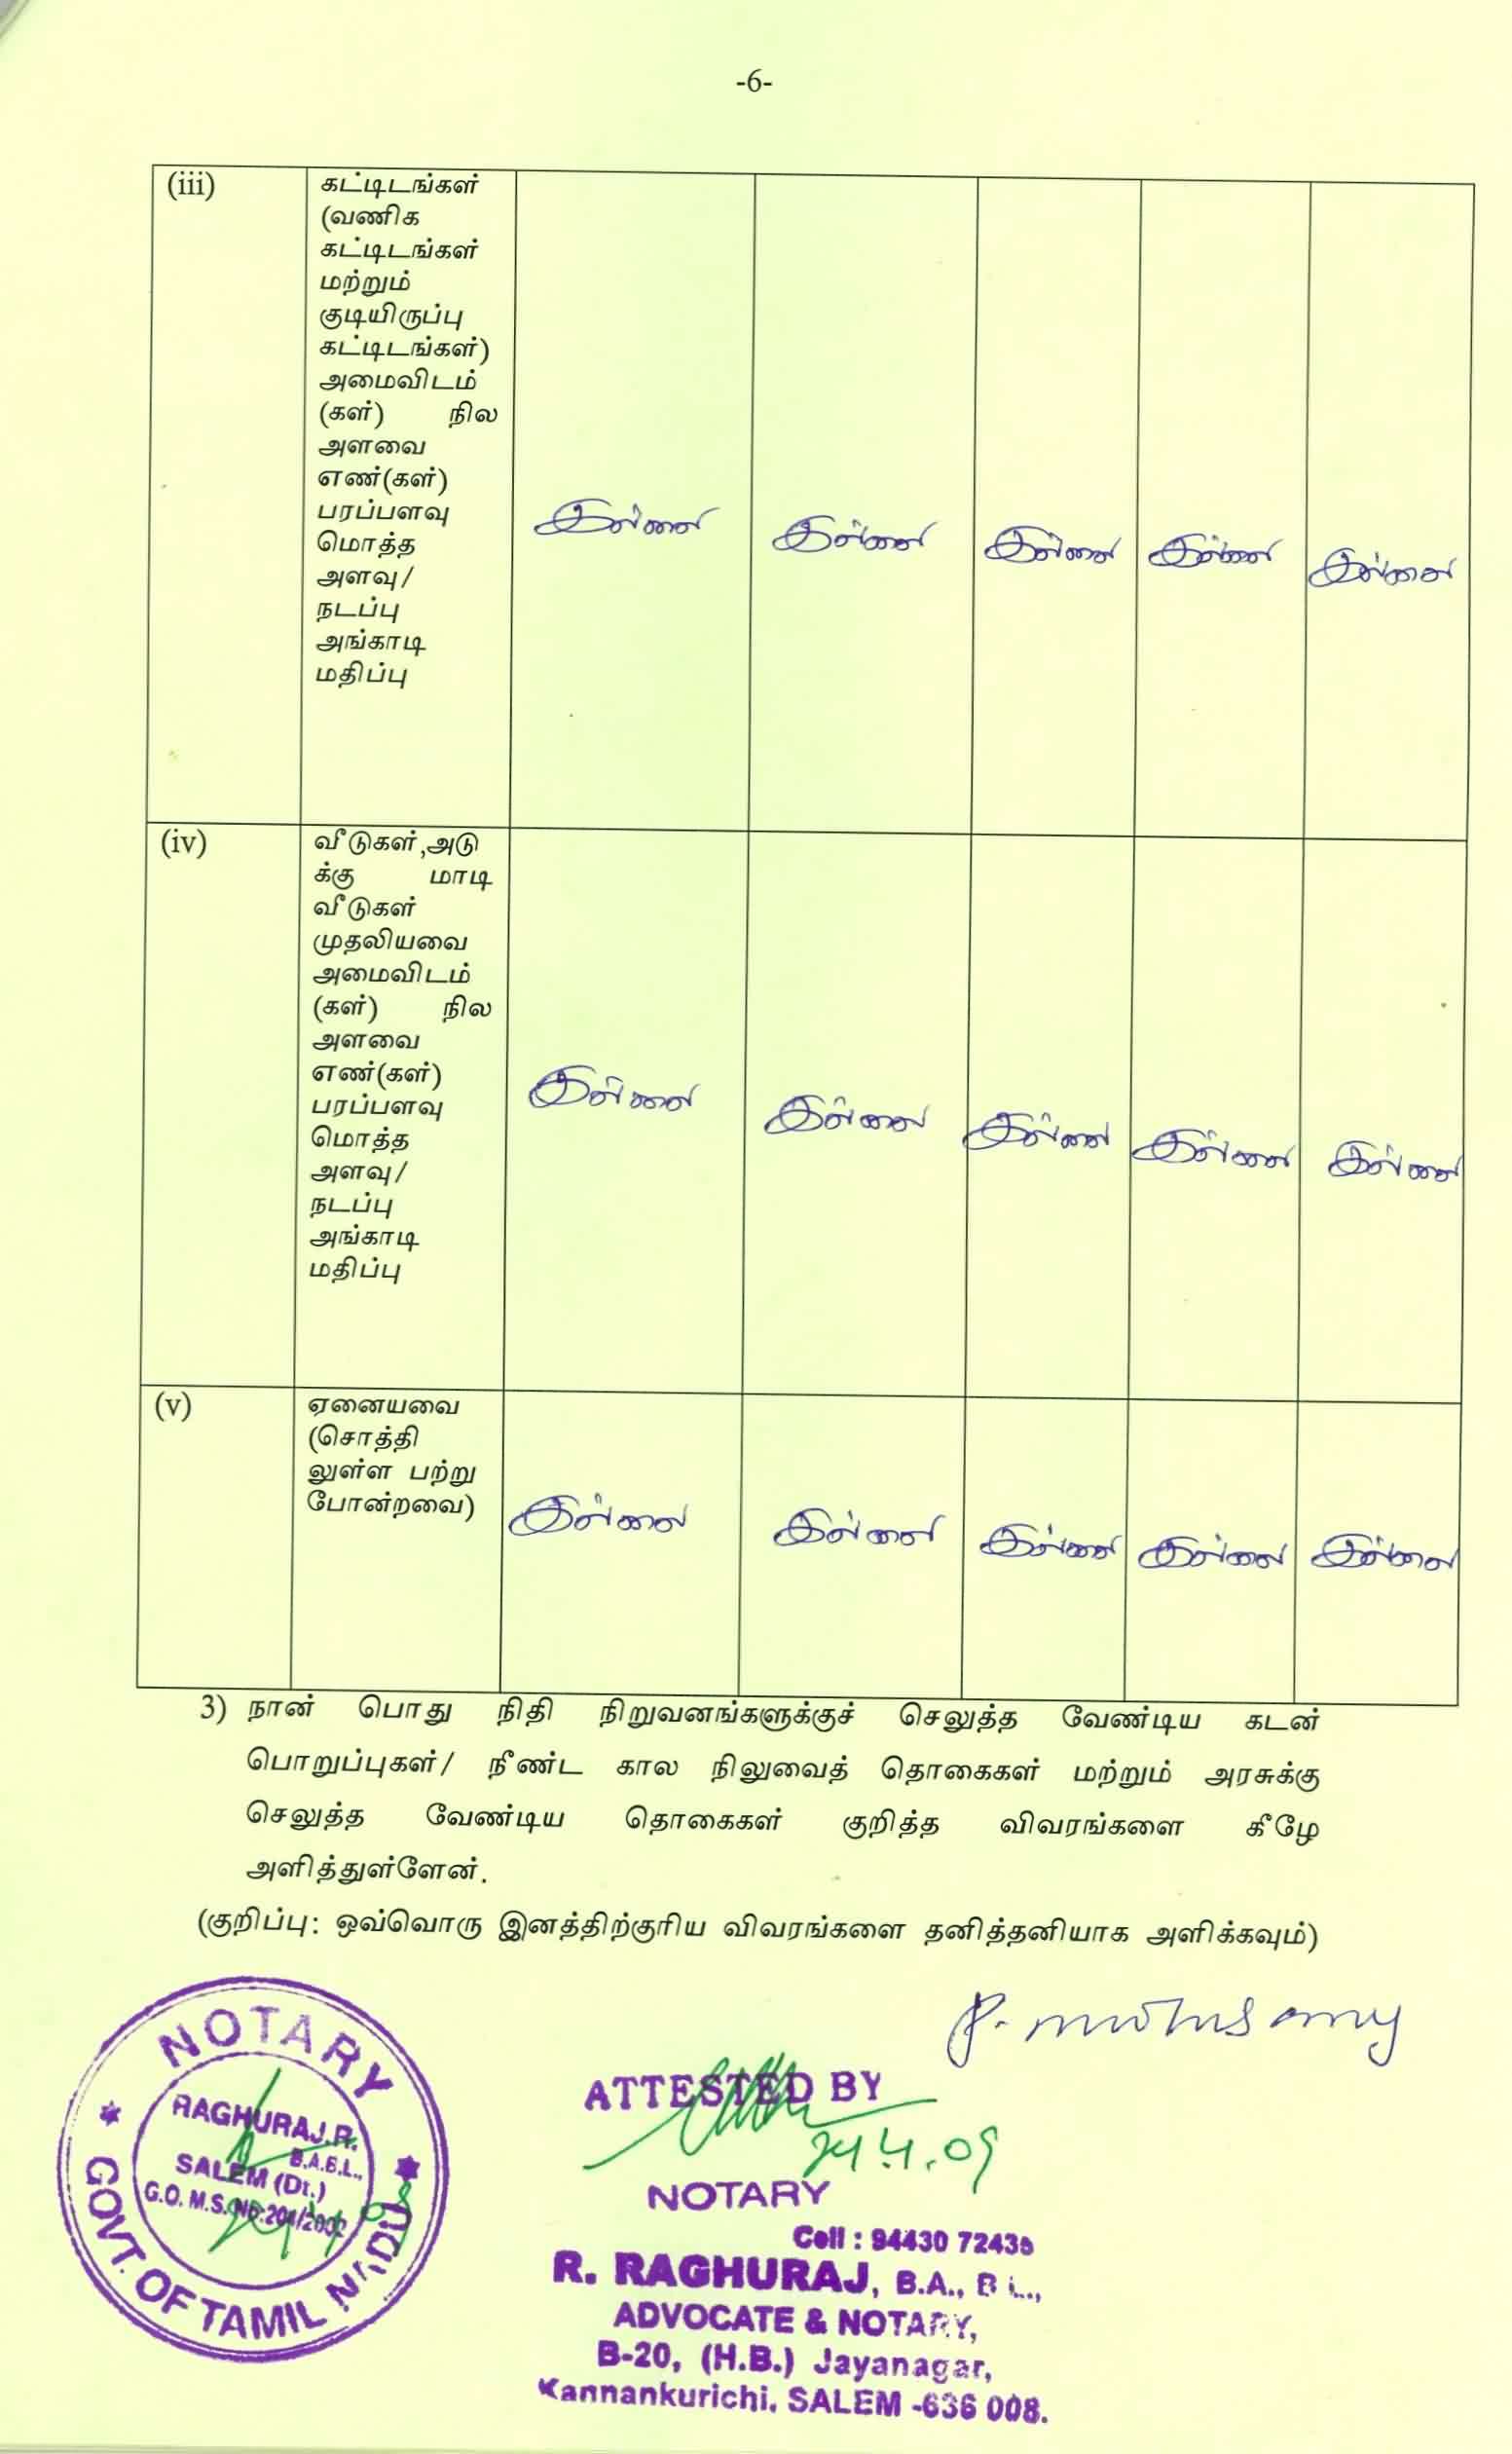 -6-
(iii)
கட்டிடங்கள்
(வணிக
கட்டிடங்கள்
மற்றும்
குடியிருப்பு
கட்டிடங்கள்)
அமைவிடம்
(கள்) நில
அளவை
எண்(கள்)
பரப்பளவு
மொத்த
அளவு/
நடப்பு
அங்காடி
மதிப்பு
இல்லை இல்லை இல்லை இல்லை இல்லை
(iv)
வீடுகள்,அடு
க்கு மாடி
வீடுகள்
முதலியவை
அமைவிடம்
(கள்) நில
அளவை
எண்(கள்)
பரப்பளவு
மொத்த
அளவு/
நடப்பு
அங்காடி
மதிப்பு
இல்லை இல்லை இல்லை இல்லை இல்லை
(v)
ஏனையவை
(சொத்தி
லுள்ள பற்று
போன்றவை)
இல்லை இல்லை இல்லை இல்லை இல்லை
3) நான் பொது நிதி நிறுவனங்களுக்குச் செலுத்த வேண்டிய கடன்
பொறுப்புகள்/ நீண்ட கால நிலுவைத் தொகைகள் மற்றும் அரசுக்கு
செலுத்த வேண்டிய தொகைகள் குறித்த விவரங்களை கீழே
அளித்துள்ளேன்.
(குறிப்பு: ஒவ்வொரு இனத்திற்குரிய விவரங்களை தனித்தனியாக அளிக்கவும்)
NOTARY
RAGHURAJ.R.
B.A.B.L.,
SALEM (Dt.)
G.O. M.S. No.204/2002
GOVT. OF TAMIL NADU
ATTESTED BY
24.4.09
NOTARY
Cell : 94430 72436
R. RAGHURAJ, B.A., B.L.,
ADVOCATE & NOTARY,
B-20, (H.B.) Jayanagar,
Kannankurichi, SALEM -636 008.